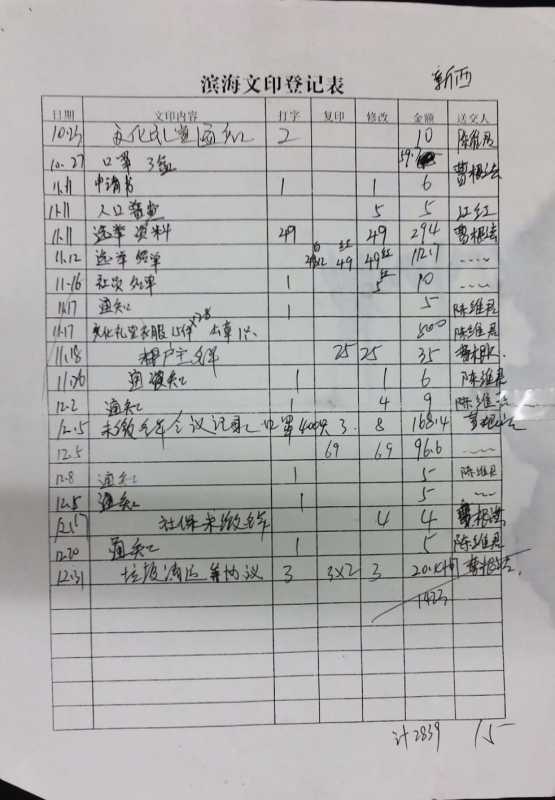 滨海文印登记表 新西
日期 文印内容 打字 复印 修改 金额 送交人
10.23 文化礼堂 2 10 陈维君
10.27 口罩 3盒 59.7 曹根法
11.11 申请书 1 1 6
11.11 人口普查 5 5 江红
11.11 选举资料 49 49 294 曹根法
11.12 选举名单 49 49红 1217 ……
11-16 社员名单 1 5红 10 ……
11.17 通知 1 5 陈维君
11.17 文化礼堂衣服15件 500 陈维君
11.18 户主名单 25 25 35
11.26 通知 1 1 6 陈维君
12.2 通知 1 4 9 陈维
12.5 未缴名单会议记录 口罩 400只 3. 8 168.4 曹根法
12.5 69 69 96.6 ……
12.8 通知 1 5 陈维君
12.5 通知 1 5 ……
12.17 社保未缴名单 4 4 曹根法
12.30 通知 1 5 陈维君
12.31 垃圾清运等协议 3 3×2 3 曹根法
1423
计2839 15